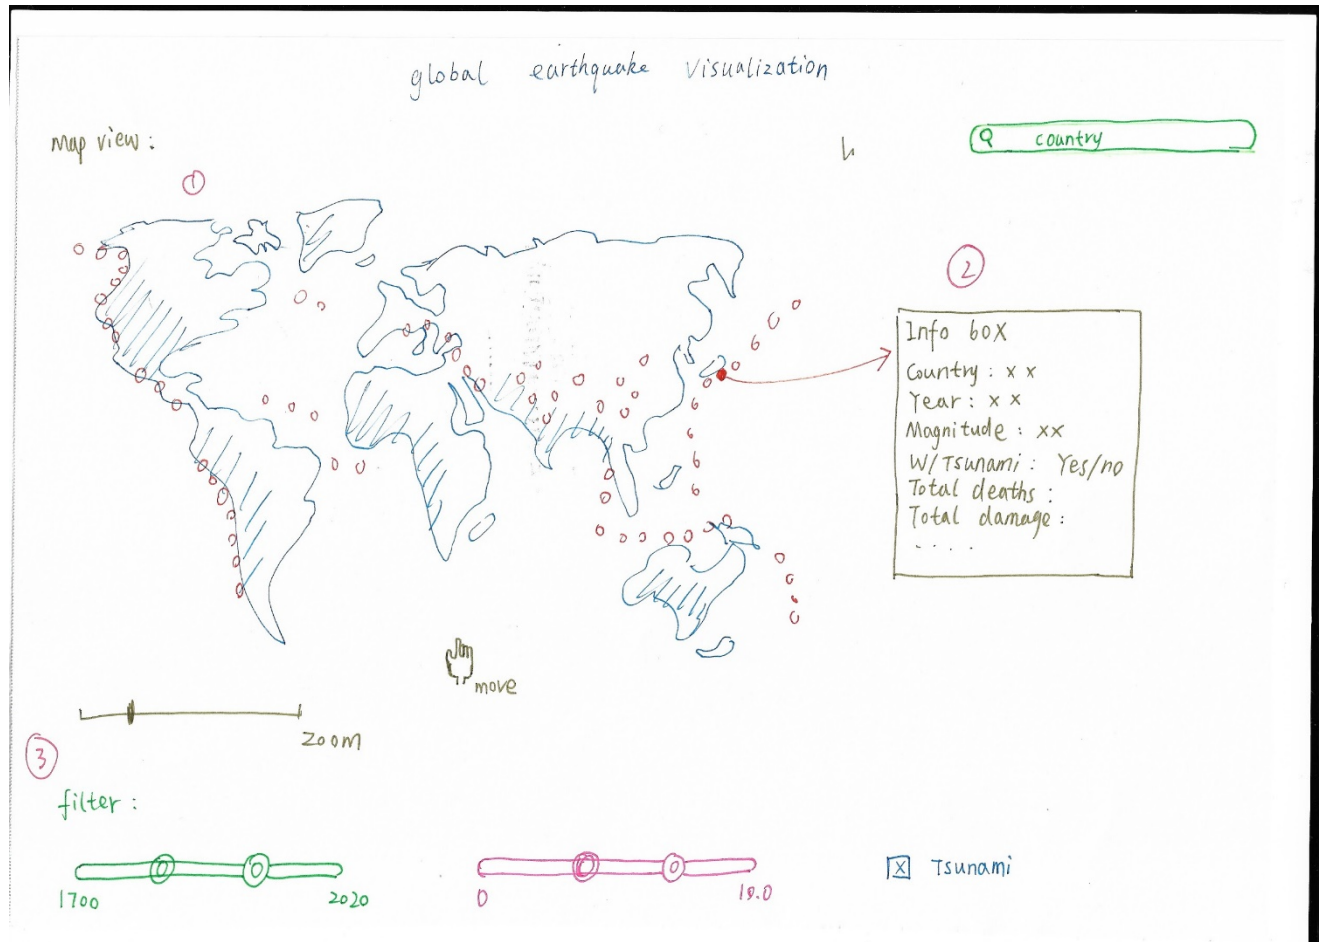 global earthquake visualization
map view :
country
①
②
Info box
Country : x x
Year : x x
Magnitude : xx
W/Tsunami : Yes/no
Total deaths :
Total damage :
. . . .
move
zoom
③
filter :
1700
2020
0
10.0
x Tsunami